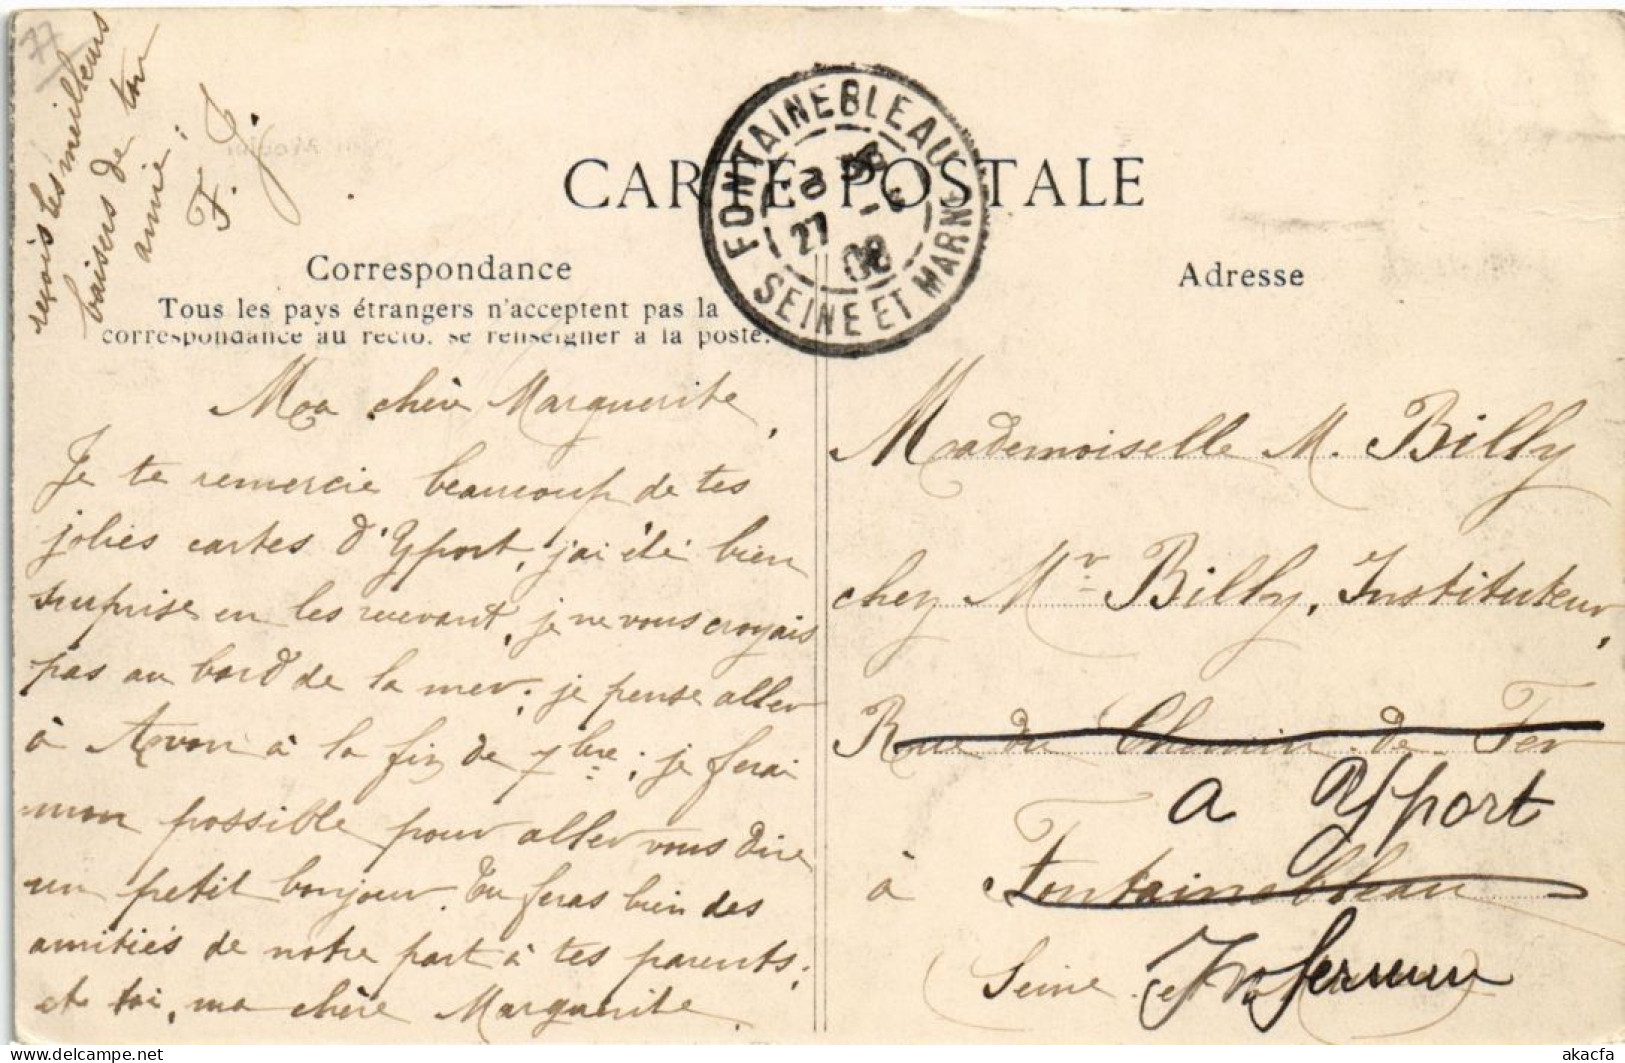 77
CARTE POSTALE
FONTAINEBLEAU
27 - 08
SEINE ET MARNE
Correspondance
Tous les pays étrangers n'acceptent pas la
correspondance au recto. se renseigner a la poste.
Adresse
Ma chère Marguerite,
Je te remercie beaucoup de tes
jolies cartes d'Yport, j'ai été bien
surprise en les recevant, je ne vous croyais
pas au bord de la mer; je pense aller
à Avon à la fin de 7bre; je ferai
mon possible pour aller vous dire
un petit bonjour. Tu feras bien des
amitiés de notre part à tes parents;
et toi, ma chère Marguerite,
reçois les meilleurs
baisers de ton
amie:
F. J.
Mademoiselle M. Billy
chez Mr Billy, Instituteur,
Rue du Chemin de Fer
a Yport
à Fontainebleau
Seine et
akacfa
www.delcampe.net